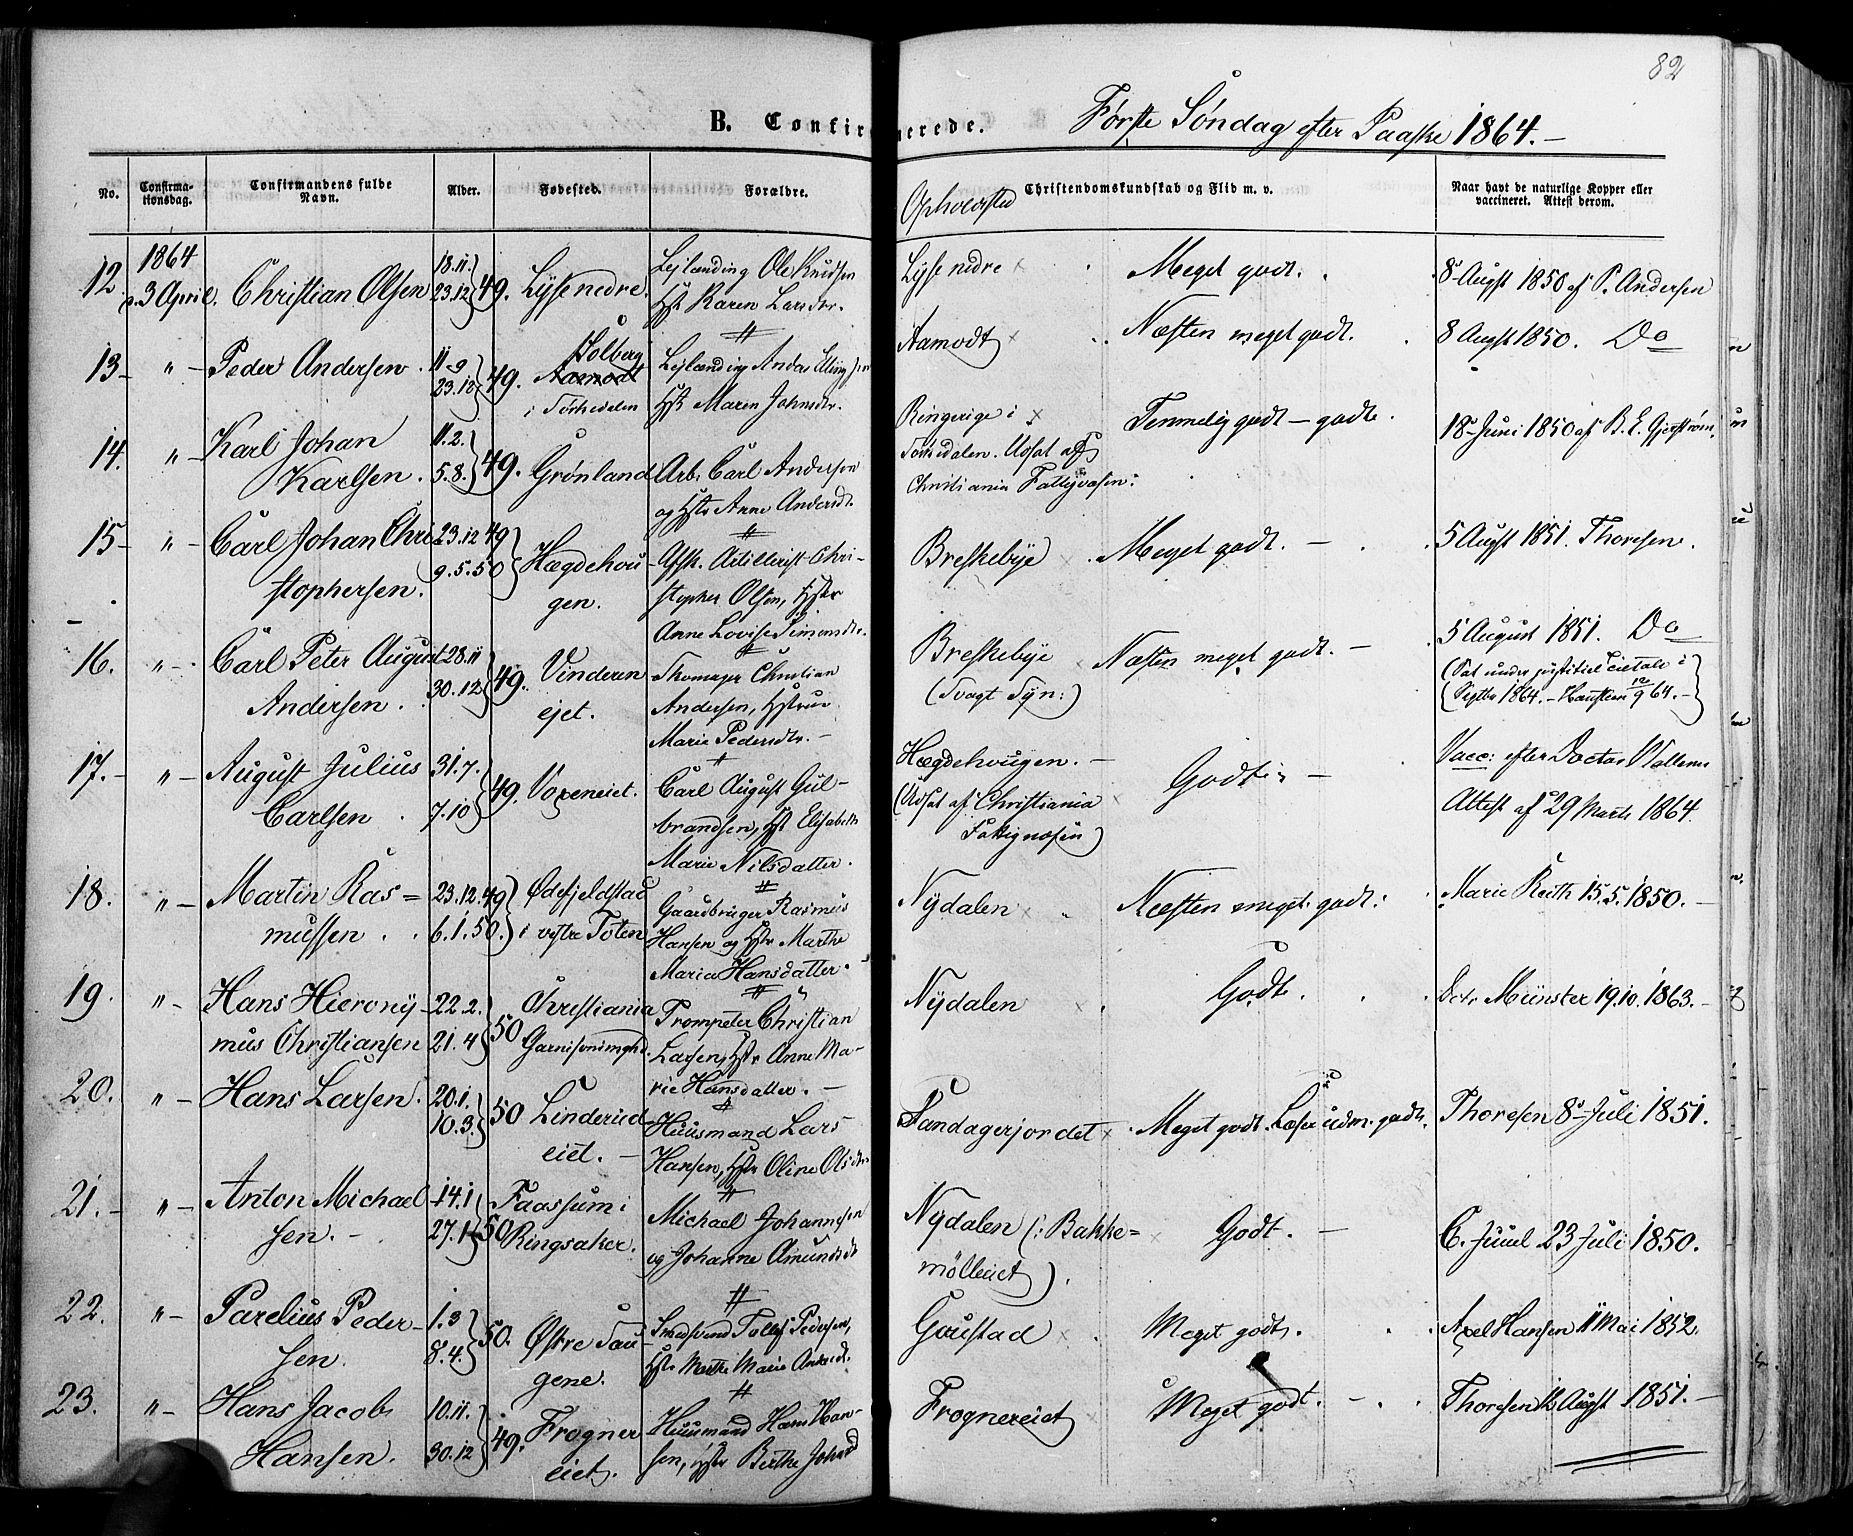 82
B. Confirmerede.
Første Søndag efter Paaske 1864.-
No.
Confirma-
tionsdag.
Confirmandens fulde
Navn.
Alder.
Fødested.
Forældre.
Opholdsted
Christendomskundskab og Flid m. v.
Naar havt de naturlige Kopper eller
vaccineret. Attest derom.
12.
1864
3 April.
Christian Olsen
18.11.
23.12
49.
Lysse nedre.
Leilænding Ole Knudsen
Hst Karen Larsdr.
Lysse nedre
Meget godt.
8 Augst 1850 af P. Andersen
13-
"-
Peder Andersen.
11-9
23.12
49.
Solberg
Aamodt
i
Leilænding Andas
Hst Maren Johnsdr.
Aamodt
Næsten meget godt.
8 Augst 1850. Do
14.
"-
Karl Johan
Karlsen.
11.2.
5.8.
49.
Grønland
Arb. Carl Andersen
og Hstr Anne Andersdr.
Ringerige i
Udsat af
Christiania Fattigvæsen:
Temmelig godt - godt.
18 Juni 1850 af
15-
"-
Carl Johan Chri-
stophersen.
23.12 49
9.5.50
Hægdehou-
gen.
Afsk. Artillerist Chri-
stopher Olsen, Hstr
Anne Lovise Simensdr.
Breskebye
Meget godt. -
5 Augst 1851. Thoresen.
16.
"-
Carl Peter August
Andersen.
28.11
30.12
49.
Vinderen
ejet.
Skomager Christian
Andersen, Hstrue
Marie Pedersdtr.-
Breskebye
(Svagt Syn:)
Næsten meget godt. -
5 August 1851. Do
17.-
"-
August Julius
Carlsen.
31.7.
7.10
49.
Voxeneiet.
Carl August Gul-
brandsen, Hst Elisabeth
Marie Nilsdatter.
Hægdehougen. -
(Udsat af Christiania
Fattigvæsen)
Godt. -
Vacc: efter Doctor
Attest af 29 Marts 1864.
18.
"-
Martin Ras=
mussen.
23.12.49
6.1.50.
Ødefjeldstad
i vestre Toten
Gaardbruger Rasmus
Hansen og Hstr Marthe
Maria Hansdatter.
Nydalen
Næsten meget godt.
Marie Reith 15.5.1850.-
19.
"-
Hans Hierony-
mus Christiansen
22.2.
21.4
50
Christiania
Garnisonsmghd.
Trompeter Christian
Larsen, Hstr Anne Ma-
rie Hansdatter. -
Nydalen
Godt.
Münster 19.10.1863.-
20.
"-
Hans Larsen.
20.1.
10.3.
50
Linderud
eiet. -
Huusmand Lars
Hansen, Hstr Oline Olsdtr
Sandagerjordet
Meget godt. Læser udm. godt.
Thoresen 8 Juli 1851.
21.-
"-
Anton Michael
sen. -
14.1
27.1
50
Faassum i
Ringsaker.
Michael Johannesen
og Johanne Amundsdt
Nydalen (: Bakke=
mølleiet).
Godt. -
C. Juuel 23 Juli 1850.
22.
"-
Parelius Peder-
sen.
1.3
8.4.
50.
Østre Sau
gene.
Smedsvend Tollef Pedersen,
Hstr Marthe Marie
Goustad
Meget godt.
Axel Hansen 11 Mai 1852.
23.
"-
Hans Jacob
Hansen.
10.11.
30.12
49.
Frogner
eiet.
Huusmand Hans Han-
sen, Hstr Berthe Johansd
Frognereiet
Meget godt. -
Thoresen 12 Augst 1851.-